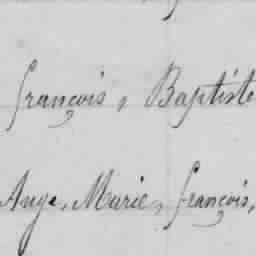 françois, Baptiste
Ange, Marie, françois,